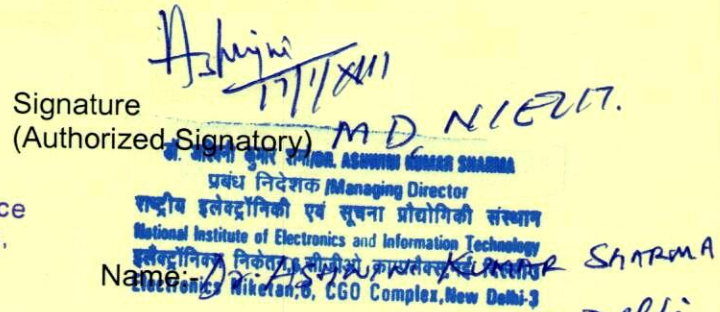 Ashwini
17/1/XIII
Signature
(Authorized Signatory) MD, NIELIT.
डॉ. अश्विनी कुमार शर्मा/DR. ASHWINI KUMAR SHARMA
प्रबंध निदेशक/Managing Director
ce
राष्ट्रीय इलेक्ट्रॉनिकी एवं सूचना प्रौद्योगिकी संस्थान
National Institute of Electronics and Information Technology
इलेक्ट्रॉनिक्स निकेतन, 6, सी.जी.ओ. काम्पलैक्स
Name:- Dr. ASHWINI KUMAR SHARMA
Electronics Niketan, 6, CGO Complex, New Delhi-3
Delhi